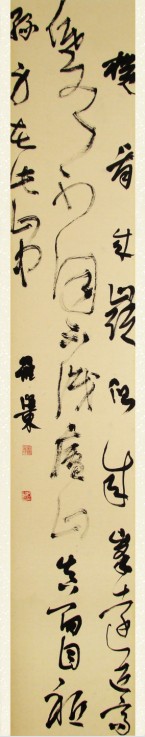 橫看成嶺側成峯遠近高
低各不同不識廬山真面目祇
緣身在此山中